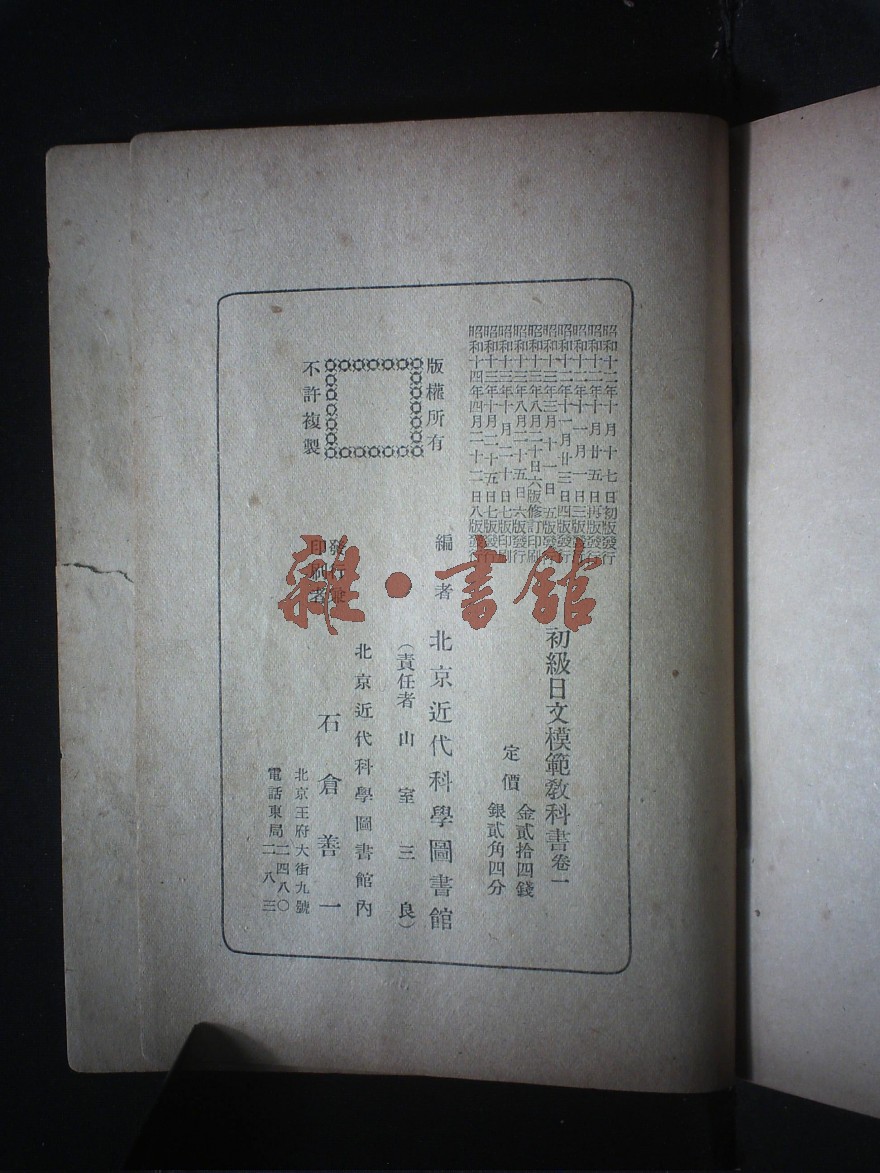 昭和十二年十月十七日初版發行
昭和十二年十月廿五日再版發行
昭和十二年十一月一日三版發行
昭和十二年十一月廿三日四版發行
昭和十三年三月十一日五版發行
昭和十三年八月二十日六版修訂印刷
昭和十三年八月二十五日六版發行
昭和十三年十月二十日七版印刷
昭和十三年十月二十五日七版發行
昭和十四年四月二十二日八版發行
初級日文模範教科書卷一
定價
金貳拾四錢
銀貳角四分
版權所有
不許複製
編者
北京近代科學圖書館
(責任者山室三良)
發行兼
印刷者
北京近代科學圖書館內
石倉善一
北京王府大街九號
電話東局二四八〇
二八三
雜·書館